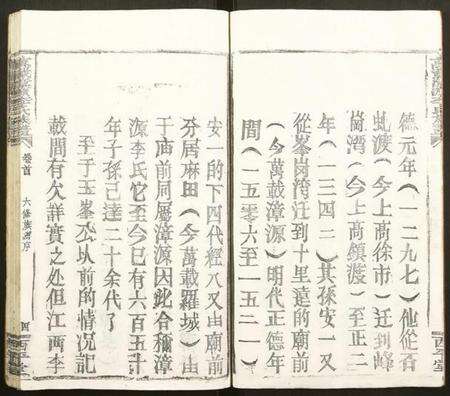 德元年（一二九七）他從斉
虬渡（今上高徐市）迁到峰
崗湾（今上高鎮渡）至正二
年（一三四二）其孫安一又
從峯崗湾迁到十里遠的廟前
（今萬載漳源）明代正德年
間（一五零六至一五二一）
安一的下四代經八又由廟前
分居麻田（今萬載羅城）由
于庙前同屬漳源因此合稱漳
源李氏它至今已有六百五十
年子孫已達二十余代了
至于玉峯公以前的情况記
載間有欠詳實之处但江西李
卷首
六修族譜序
四
西平堂